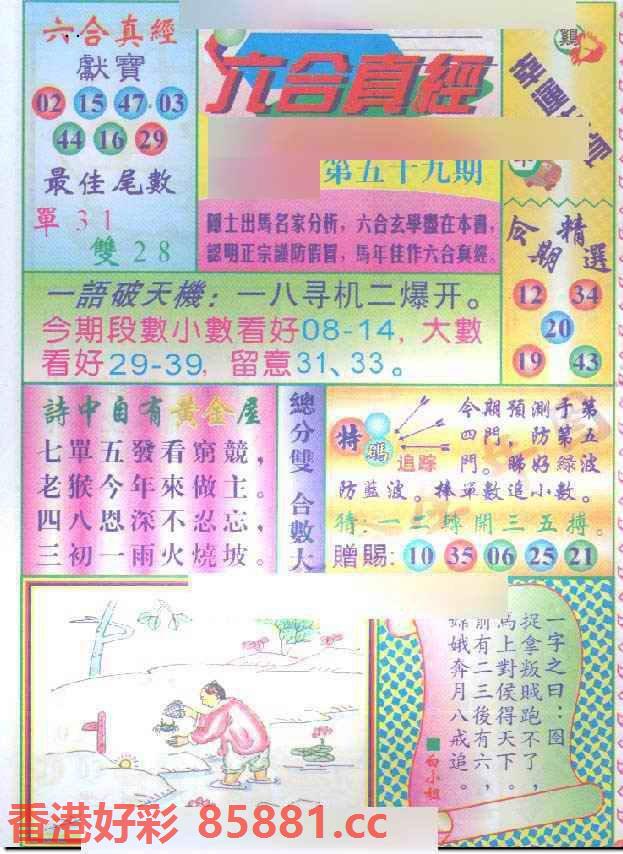 六合真經
獻寶
02 15 47 03
44 16 29
最佳尾數
單 31
雙 28
六合真經
第五十九期
隱士出馬名家分析，六合玄學盡在本書，
認明正宗謹防假冒，馬年佳作六合真經。
鷄
今期精選
12 34
20
19 43
一語破天機：一八寻机二爆开。
今期段數小數看好08-14, 大數
看好29-39, 留意31、33。
詩中自有黃金屋
七單五發看窮競，
老猴今年來做主。
四八恩深不忍忘，
三初一雨火燒坡。
總分雙 合數大
特碼
追踪
今期預測于第
四門，防第五
門。睇好綠波
防藍波。捧單數追小數。
猜:一二球開三五搏。
贈賜: 10 35 06 25 21
一字之曰：图
捉拿叛賊跑不了，
馬上對侯得天下。
前有二三後有六，
娥奔月八戒追。
白小姐
香港好彩 85881.cc